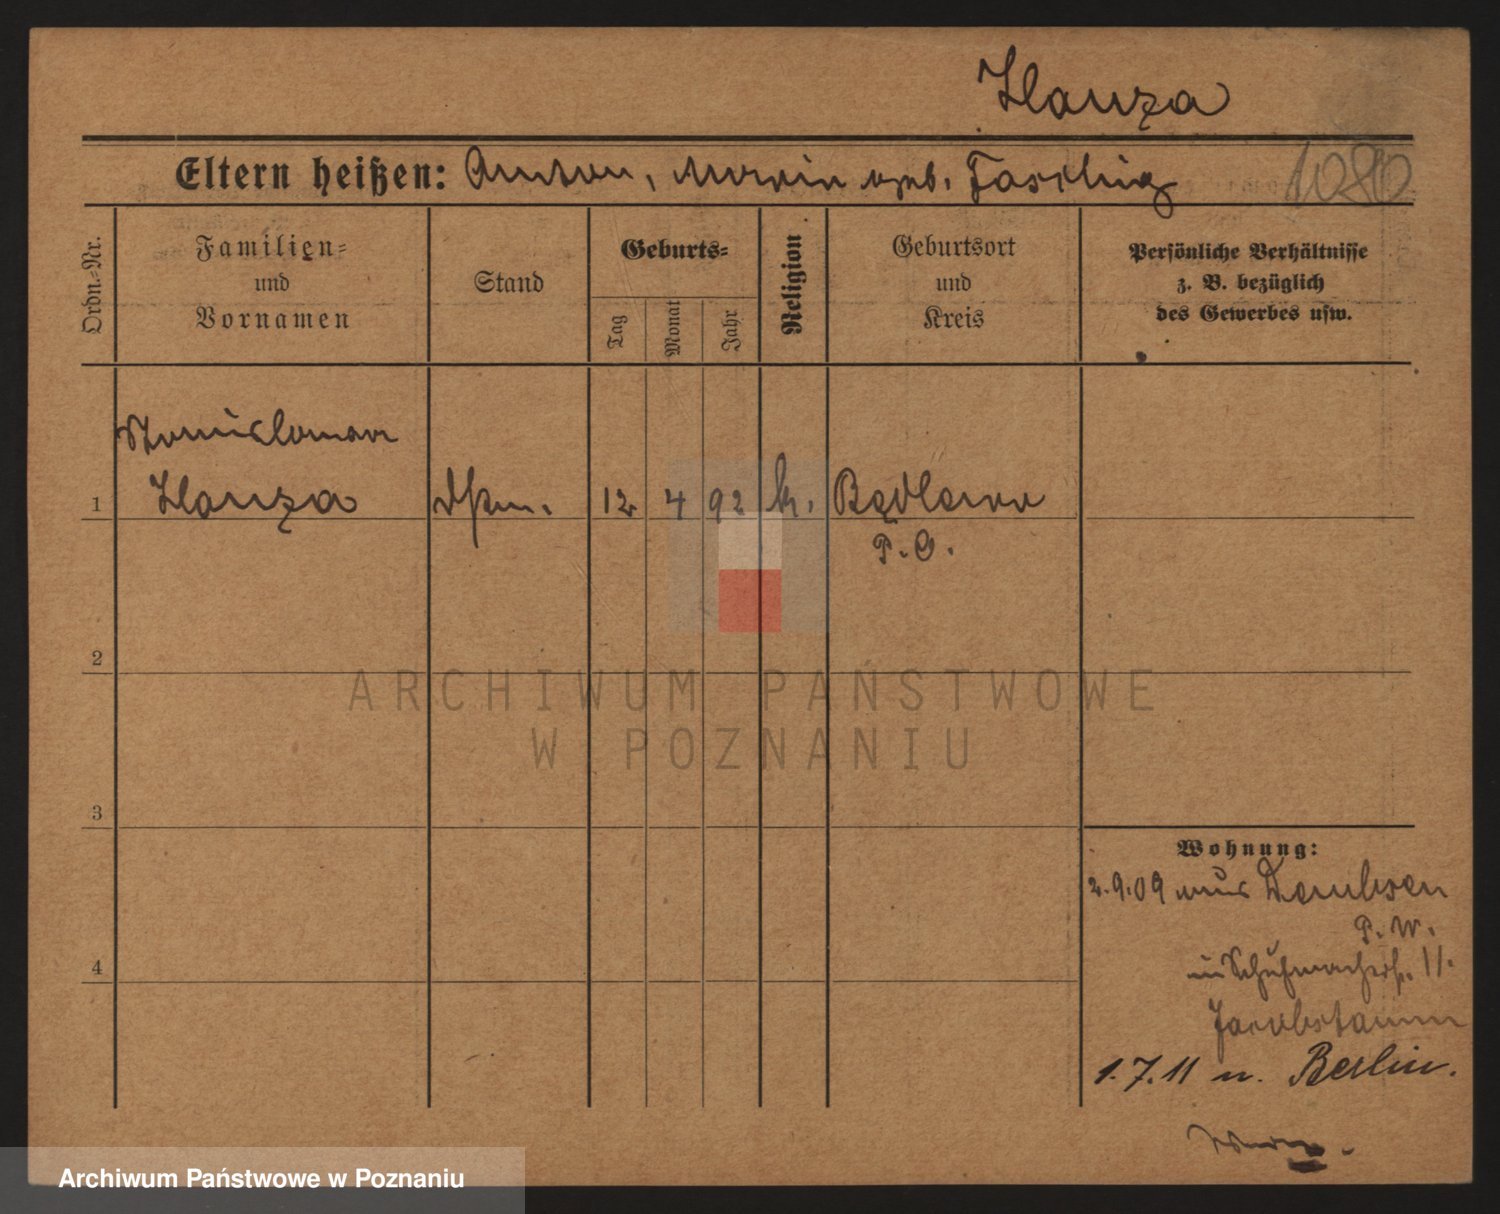 Hanza
Eltern heißen: Anton, Marie geb.
1080
Ordn.-Nr.
Familien-
und
Vornamen
Stand
Geburts-
Tag
Monat
Jahr
Religion
Geburtsort
und
Kreis
Persönliche Verhältnisse
z. B. bezüglich
des Gewerbes usw.
Stanislawa
1 Hanza 12 4 92 k.
P. O.
2
3
4
Wohnung:
2.9.09 aus Dembsen
P. W.
in Schuhmacherstr. 11.
1.7.11 n. Berlin.
ARCHIWUM PAŃSTWOWE
W POZNANIU
Archiwum Państwowe w Poznaniu